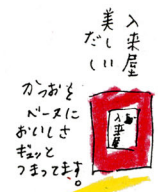 入来屋
美しい
だし
かつおを
ベースに
おいしさ
ギュッと
つまってます。
入来屋